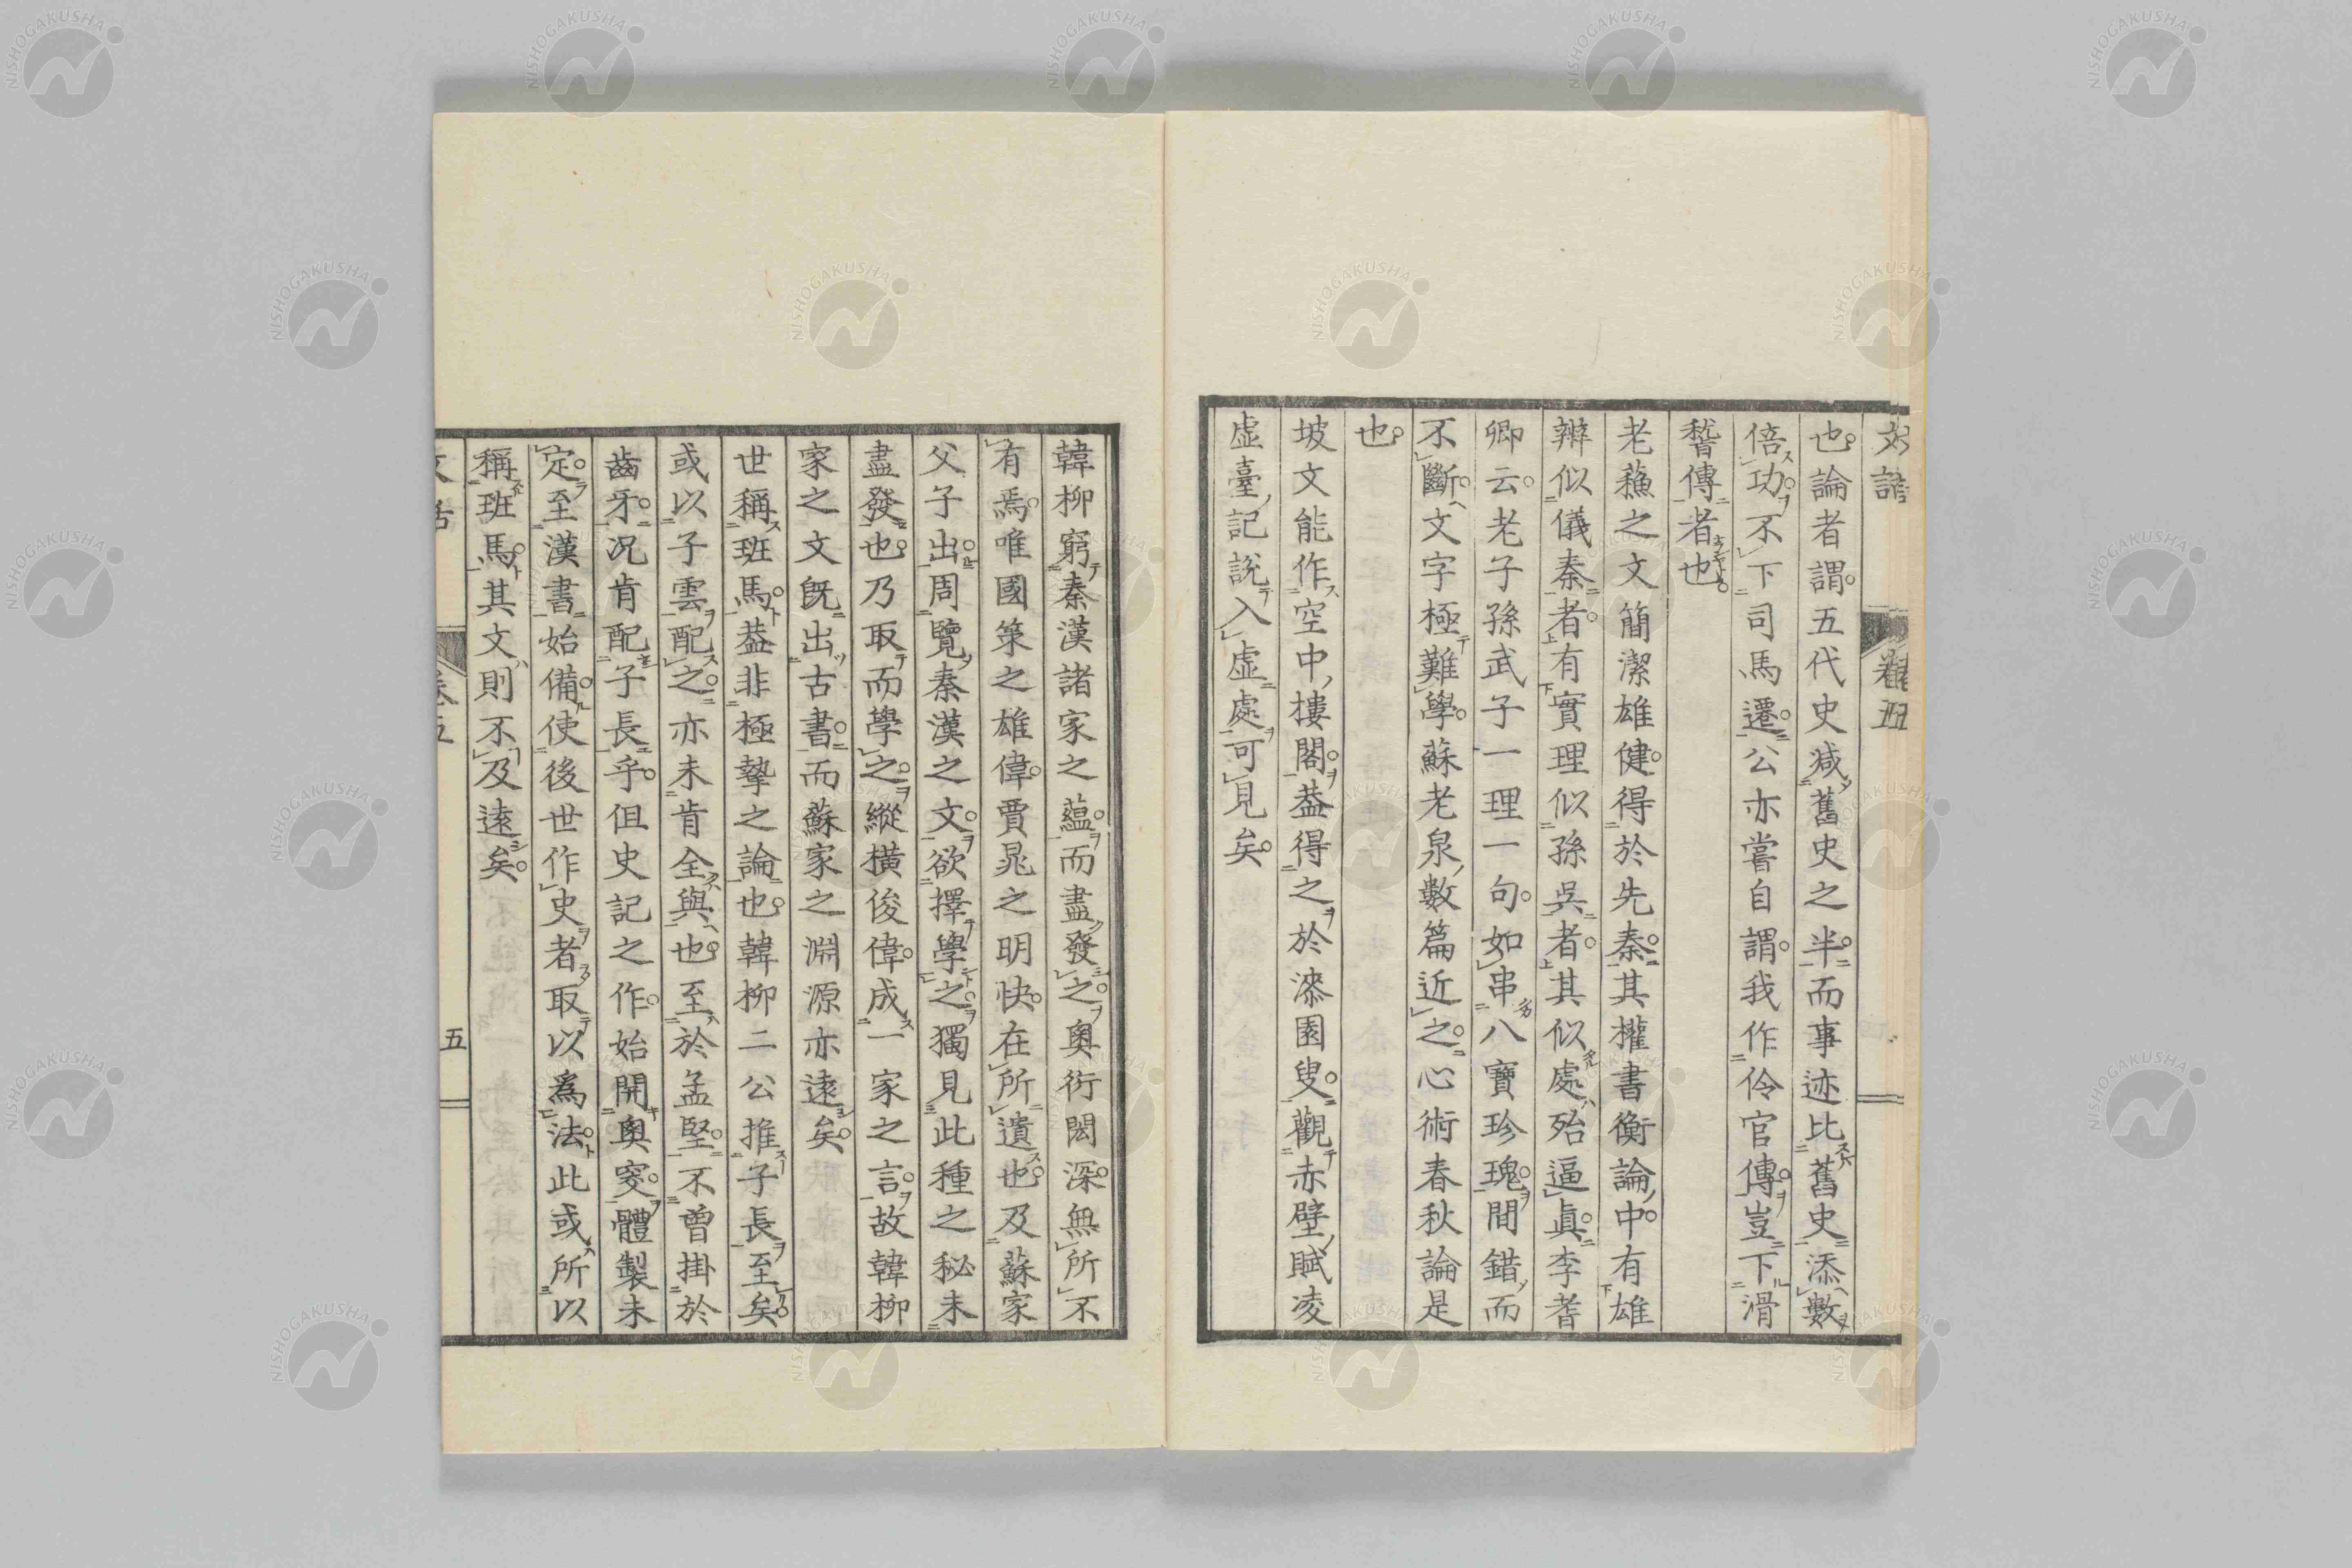 文話 卷五
也。論者謂。五代史減舊史之半。而事迹比舊史添數
倍。功不下司馬遷。公亦嘗自謂。我作伶官傳。豈下滑
稽傳者也。
老蘓之文簡潔雄健。得於先秦。其權書衡論中。有雄
辯似儀秦者。有實理似孫吳者。其似處殆逼眞。李耆
卿云。老子孫武子一理一句。如串八寶珍瑰。間錯而
不斷。文字極難學。蘇老泉數篇近之。心術春秋論是
也。
坡文能作空中樓閣。葢得之於漆園叟。觀赤壁賦凌
虛臺記說入虛處可見矣。
韓柳窮秦漢諸家之蘊。而盡發之。奧衍閎深。無所不
有焉。唯國策之雄偉。賈晁之明快。在所遺也。及蘇家
父子出。周覽秦漢之文。欲擇學之。獨見此種之秘未
盡發也。乃取而學之。縱横俊偉。成一家之言。故韓柳
家之文既出古書。而蘇家之淵源亦遠矣。
世稱班馬。葢非極摯之論也。韓柳二公推子長至矣。
或以子雲配之。亦未肯全與也。至於孟堅。不曽掛於
齒牙。况肯配子長乎。但史記之作。始開奧窔。體製未
定。至漢書始備。使後世作史者取以爲法。此或所以
稱班馬。其文則不及遠矣。
文話 卷五 五
NISHOGAKUSHA